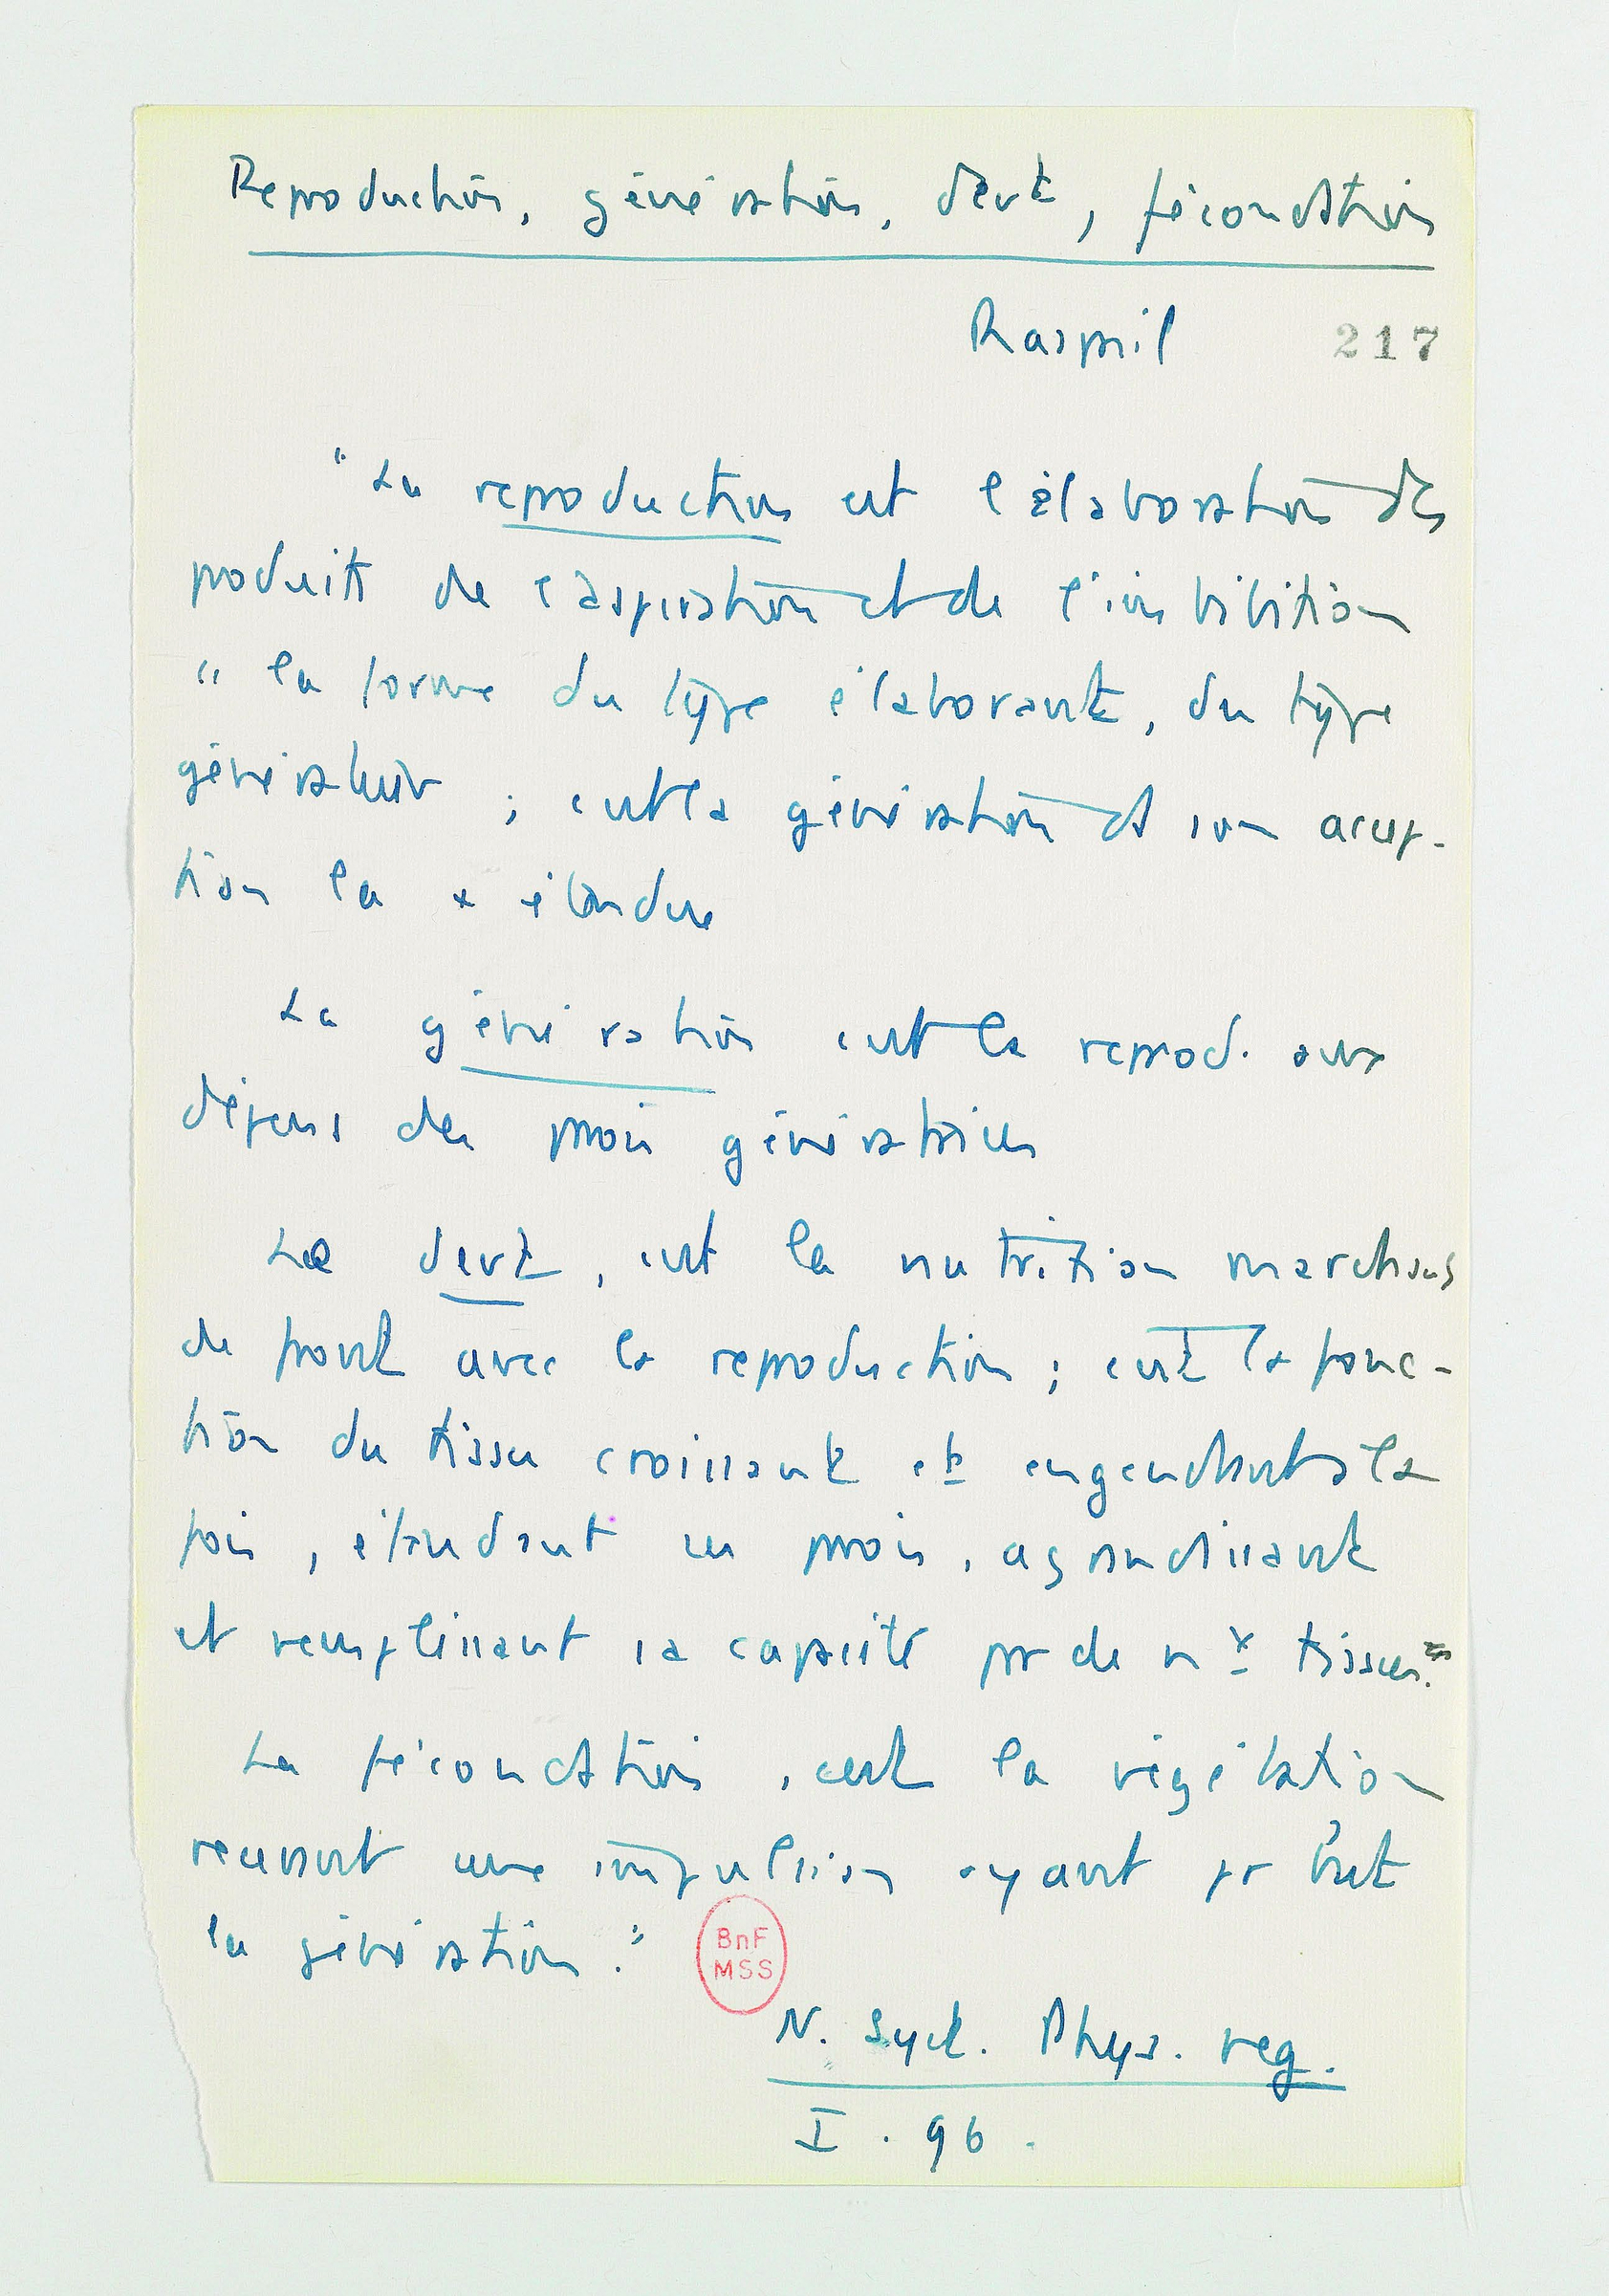 Reproduction, génération, devt, fécondation
Raspail 217
"La reproduction est l'élaboration des
produits de l'aspiration et de l'imbibition
" la forme du type élaborant, du type
générateur ; c'est la génération ds son accep-
tion la + étendue
La génération c'est la reprod. aux
dépens des parois génératrices
Le devt, c'est la nutrition marchant
de front avec la reproduction ; c'est la fonc-
tion du tissu croissant et engendrant à la
fois, étendant ses parois, agrandissant
et remplissant sa capacité par de nx tissus."
La fécondation, c'est la végétation
recevant une impulsion ayant pr but
la génération."
BnF
MSS
N. Syst. Phys. veg.
I. 96.